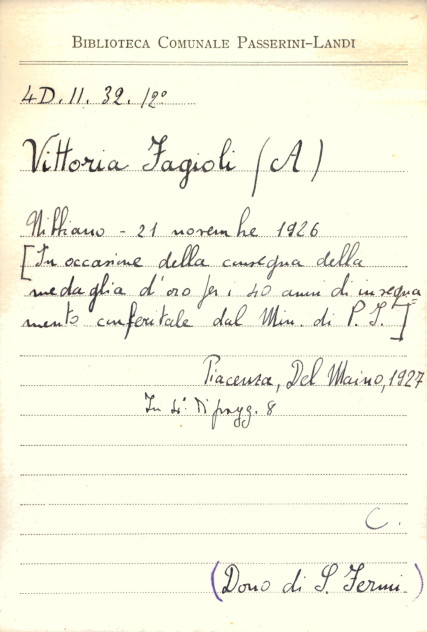 BIBLIOTECA COMUNALE PASSERINI-LANDI
4D. II. 32. 12°
Vittoria Fagioli (A)
Nibbiano - 21 novembre 1926
[In occasione della consegna della
medaglia d'oro per i 40 anni di insegna=
mento conferitale dal Min. di P. I.]
Piacenza, Del Maino, 1927
In 4° di pagg. 8
C.
(Dono di S. Fermi.)